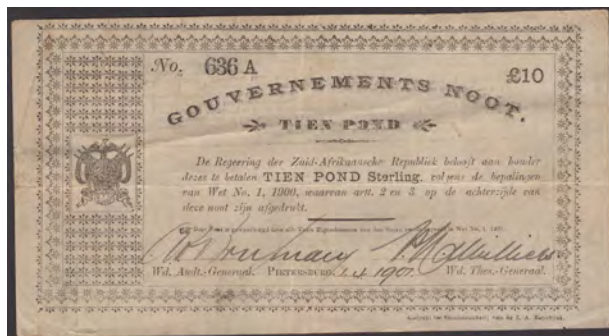 No. 636 A
£10
GOUVERNEMENTS NOOT.
TIEN POND
De Regeering der Zuid-Afrikaansche Republiek belooft aan houder
dezes te betalen TIEN POND Sterling, volgens de bepalingen
van Wet No. 1, 1900, waarvan artt. 2 en 3 op de achterzijde van
deze noot zijn afgedrukt.
Wd. Audt.-Generaal. PIETERSBURG, 1.4.1901. Wd. Thes.-Generaal.